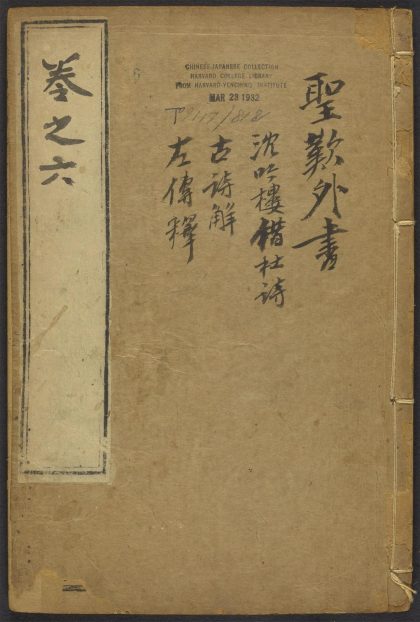 聖歎外書
沈吟樓借杜詩
古詩解
左傳釋
卷之六
CHINESE-JAPANESE COLLECTION
HARVARD COLLEGE LIBRARY
FROM HARVARD-YENCHING INSTITUTE
MAR 28 1932